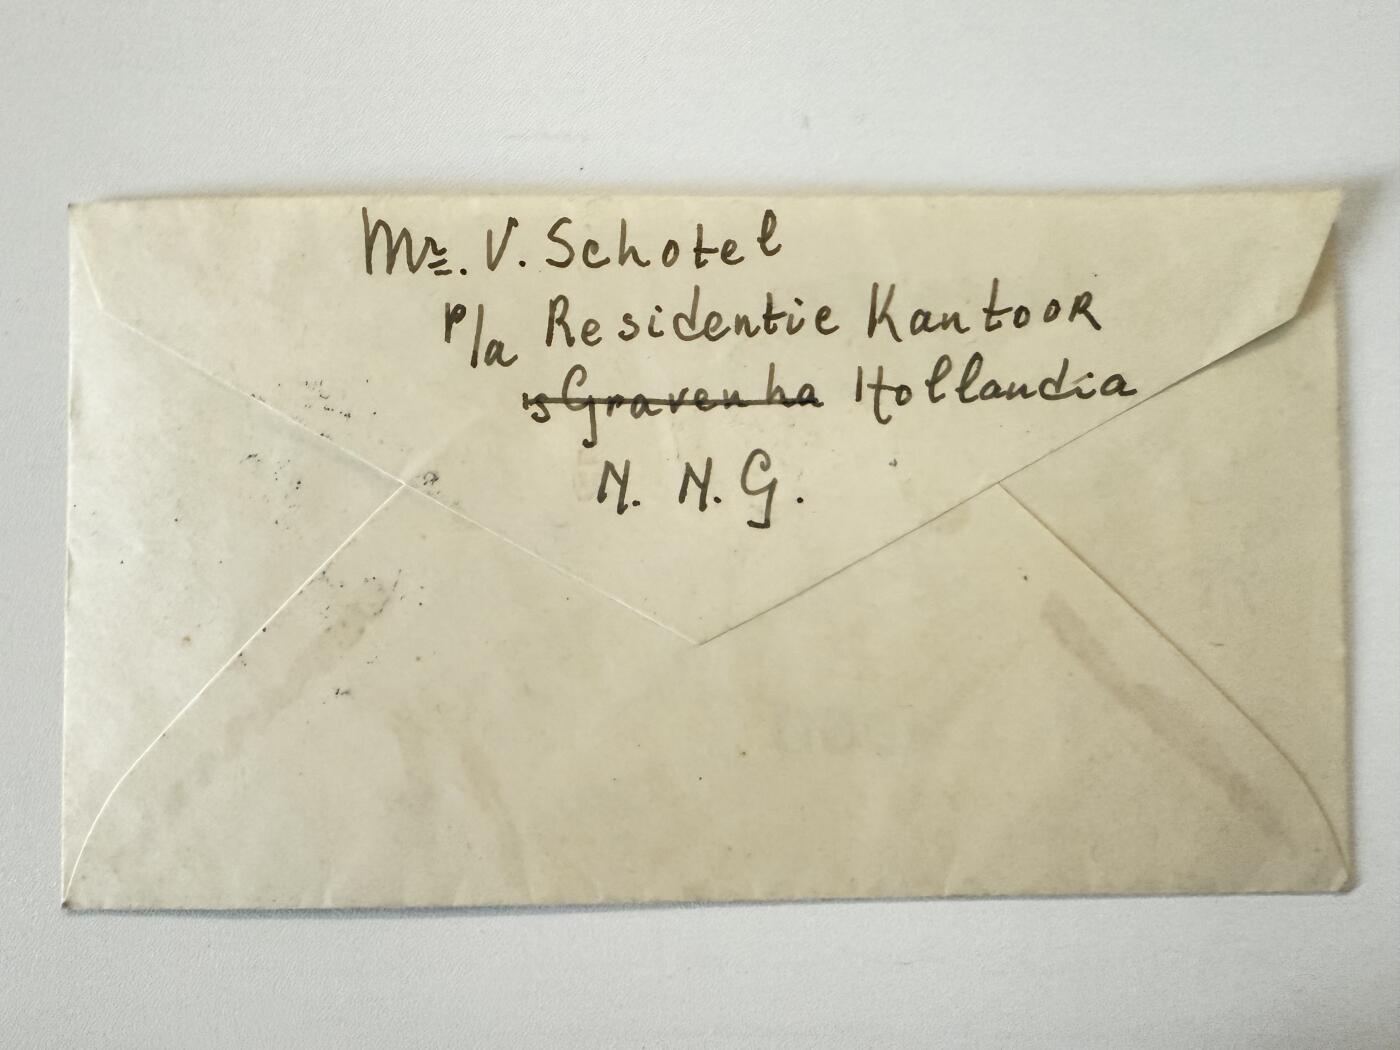 Mr. V. Schotel
p/a Residentie Kantoor
's Gravenha Hollandia
N. N. G.